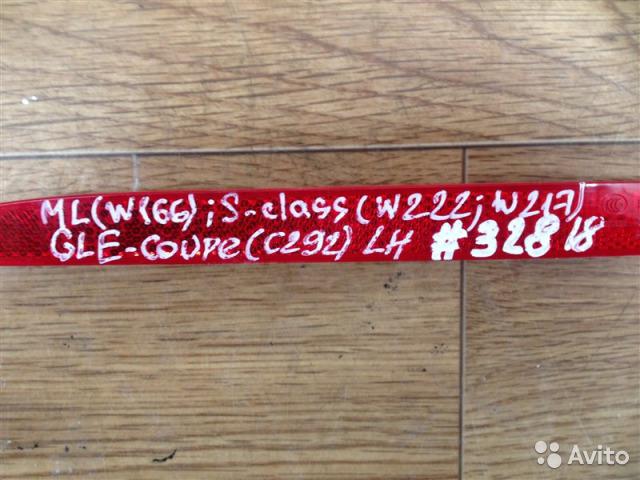 ML(W166); S-class(W222; W217)
GLE-COUPE(C292) LH #328 18
Avito